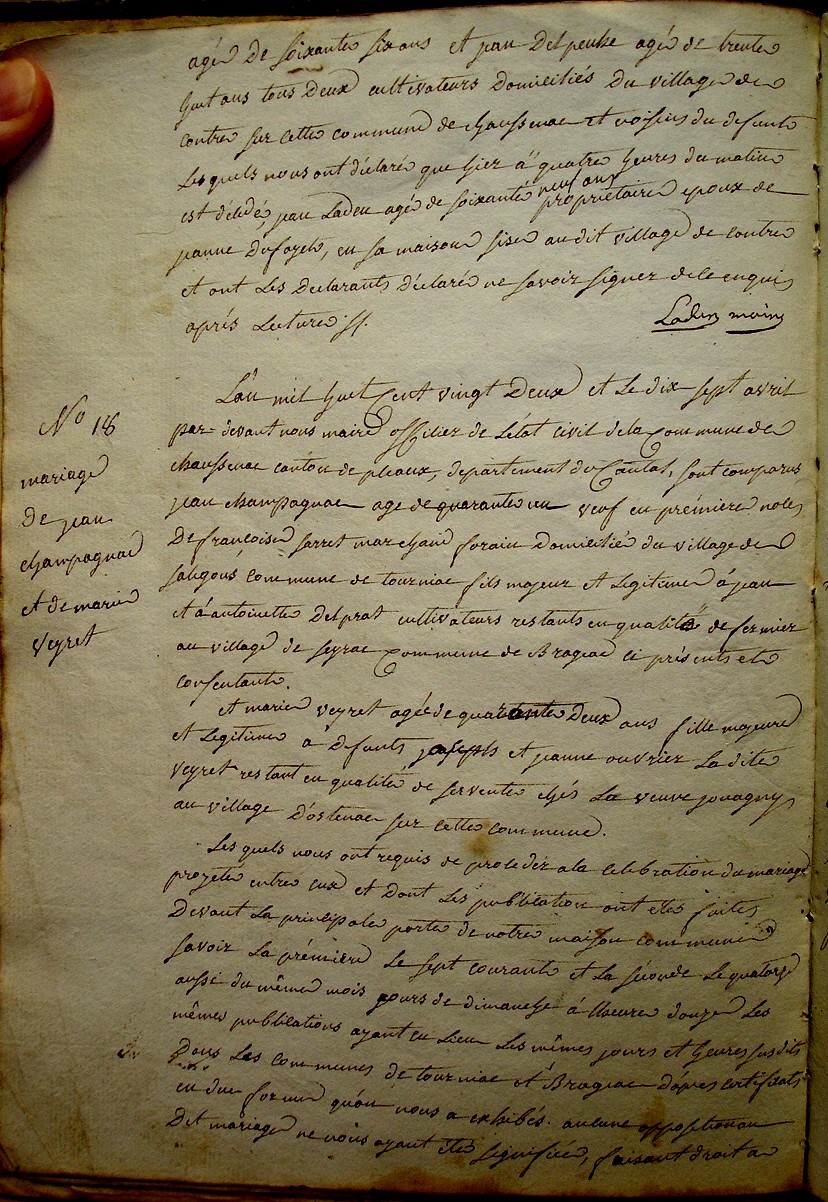 agée de soixante six ans et jean Delpeuhe agée de trente
huit ans tous Deux cultivateurs Domiciliés Du village de
contre sur cette commune de chaussenac et voisins du defunt
Lesquels nous ont déclaré que hier à quatre heures du matin
est décédé, jean Laden agée de soixante neuf ans propriétaire epoux de
jeanne Dufayet, en sa maison sise au dit village de contre
et ont Les Declarants déclaré ne savoir signer de ce enquis
aprés Lecture //.
Laden maire
No 18
mariage
De jean
champagnac
et de marie
veyret
L'an mil huit Cent vingt Deux et Le dix sept avril
par-devant nous maire officier de L'état civil de la Commune de
chaussenac canton de pleaux, département du Cantal, sont comparus
jean champagnac age de quarante un veuf en prémiere noles
De françoise sarret marchand forain Domicilié du village de
salgous commune de tourniac fils majeur et Legitime à jean
et à antoinette Delprat cultivateurs restants en qualité de fermier
au village de seyrac Commune de Brageac ci présents et
consentants.
et marie veyret agée de quarante Deux ans fille majeure
et Legitime à Defunts joseph et jeanne ouvrier La dite
veyret restant en qualité de servente chés La veuve jouagny
au village D'ostenac sur cette commune.
Lesquels nous ont requis de proceder a la celebration du mariage
projeté entre eux et Dont Les publication ont etés faites
Devant La principale porte de notre maison commune
savoir La prémiere Le sept courant et la séconde Le quatorze
aussi du même mois jours de dimanche à L'heure douze Les
mêmes publications ayant eu Lieu Les mêmes jours et heures susdits
Dans Les communes de tourniac et Brageac d'aprés certificats
en due forme qu'on nous a exhibés. aucune opposition au
Dit mariage ne nous ayant été signifiée, faisant droit a